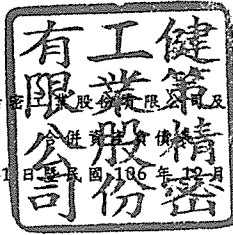 健策精密
工業股份
有限公司
密工業股份有限公司及
併資產負債
1日暨民國 106 年 12 月